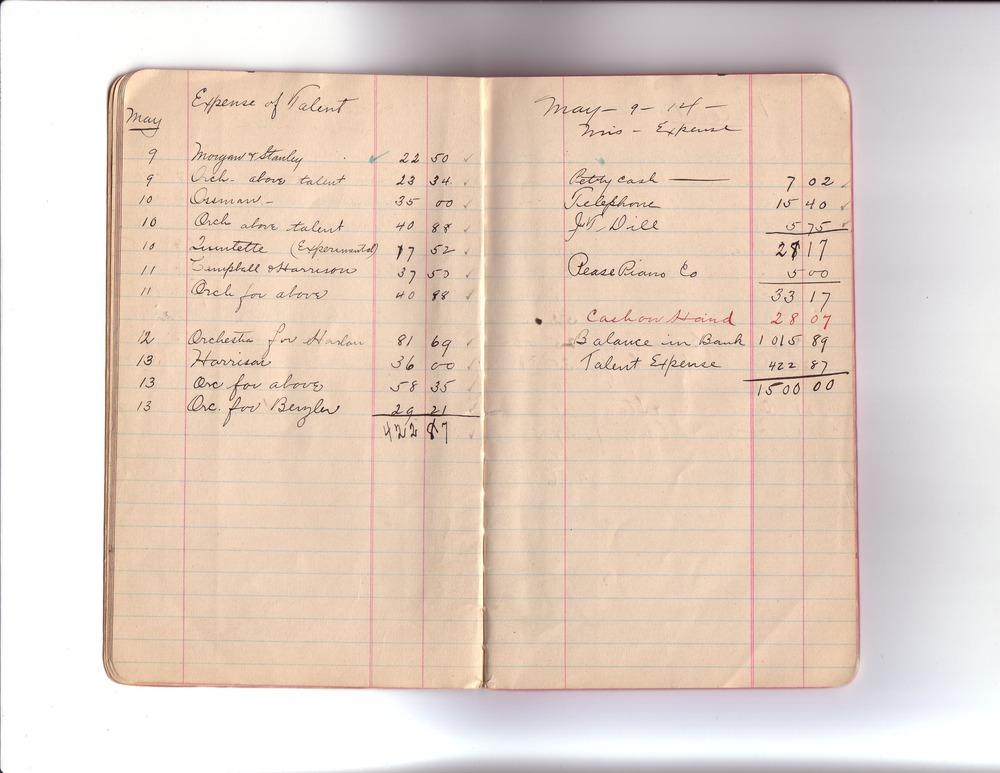 Expense of Talent
May
9 Morgan & Stanley 22 50
9 Orch - above talent 23 34
10 Ossman - 35 00
10 Orch above talent 40 88
10 Quintette (Experimental) 17 52
11 Campbell & Harrison 37 50
11 Orch for above 40 88
12 Orchestra for Harlan 81 69
13 Harrison 36 00
13 Orc for above 58 35
13 Orc. for Benzler 29 21
422 87
May - 9 - 14 -
Mis - Expense
Petty cash 7 02
Telephone 15 40
Dill 5 75
28 17
Pease Piano Co 5 00
33 17
Cash on Hand 28 07
Balance in Bank 1 015 89
Talent Expense 422 87
1500 00